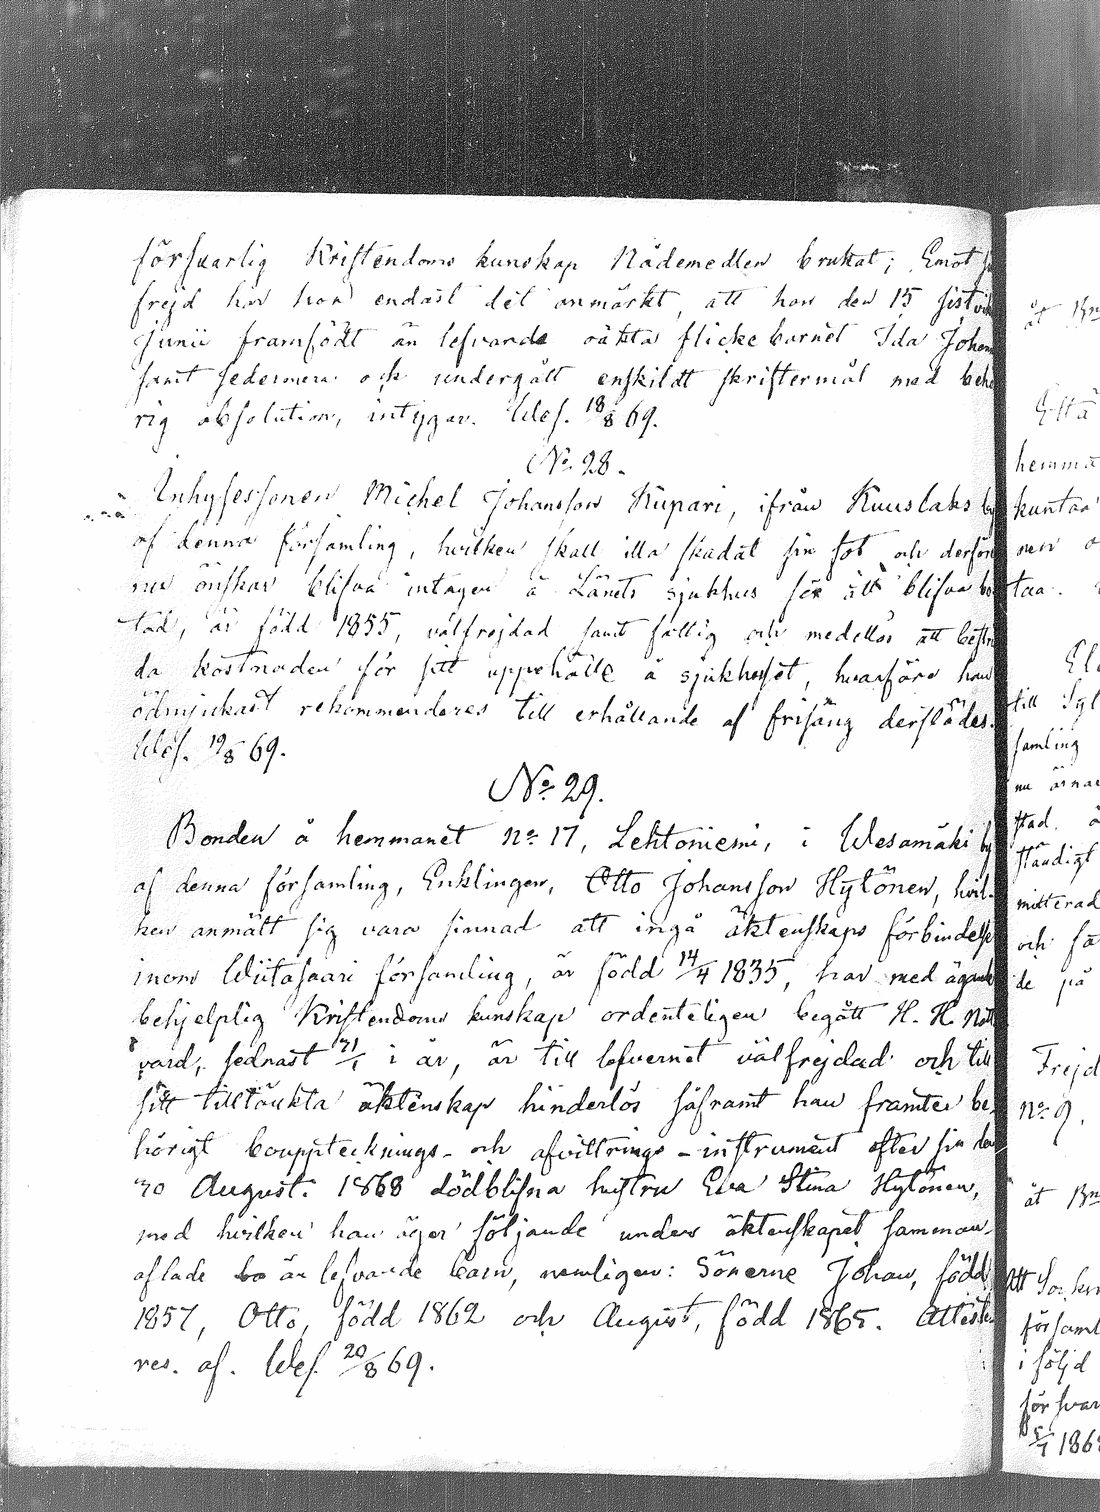 försvarlig Kristendoms kunskap Nådemedlen brukat; Emot
frejd har hon endast det anmärkt, att hon den 15 sistvi
Junii framfödt än lefvande oäkta flickebarnet Ida Johan
samt sedermera och undergått enskildt skriftermål med behö
rig absolution, intygar. Wes. 18/8 69.
No 28.
Inhysessonen Michel Johansson Kupari, ifrån Kuuslaks by
af denna församling, hvilken skall illa skadat sin fot och derföre
nu önskar blifva intagen å Länets sjukhus för att blifva bo
tad, är född 1855, välfrejdad samt fattig och medellös att bestri
da kostnaden för sitt uppehälle å sjukhuset, hvarföre han
ödmjukast rekommenderes till erhållande af frisäng derstädes.
Wes. 19/8 69.
No 29.
Bonden å hemmanet no 17, Lehtoniemi, i Wesamäki by
af denna församling, Enklingen, Otto Johansson Hytönen, hvil-
ken anmält sig vara sinnad att ingå äktenskaps förbindelse
inom Wiitasaari församling, är född 14/4 1835, har med
behjelplig Kristendoms kunskap ordenteligen begått H. H. Natt
vard, sednast i år, är till lefvernet välfrejdad och till
sitt tilltänkta äktenskap hinderlös såframt han framter be-
hörigt bouppteknings- och afvittrings-instrument efter sin den
30 August. 1868 dödblifna hustru Eva Stina Hytönen,
med hvilken han äger följande under äktenskapet samman-
aflade än lefvande barn, nemligen: Sönerne Johan, född
1857, Otto, född 1862 och August, född 1865. Atteste
res. af. Wes. 20/8 69.
åt
hemma
kuntaa
nen
taa.
till
samling
nu ärnar
stad.
ständigt
mitterad
och få
de på
Frejd
no 9.
åt
Att
församl
i följd
försvar
1868